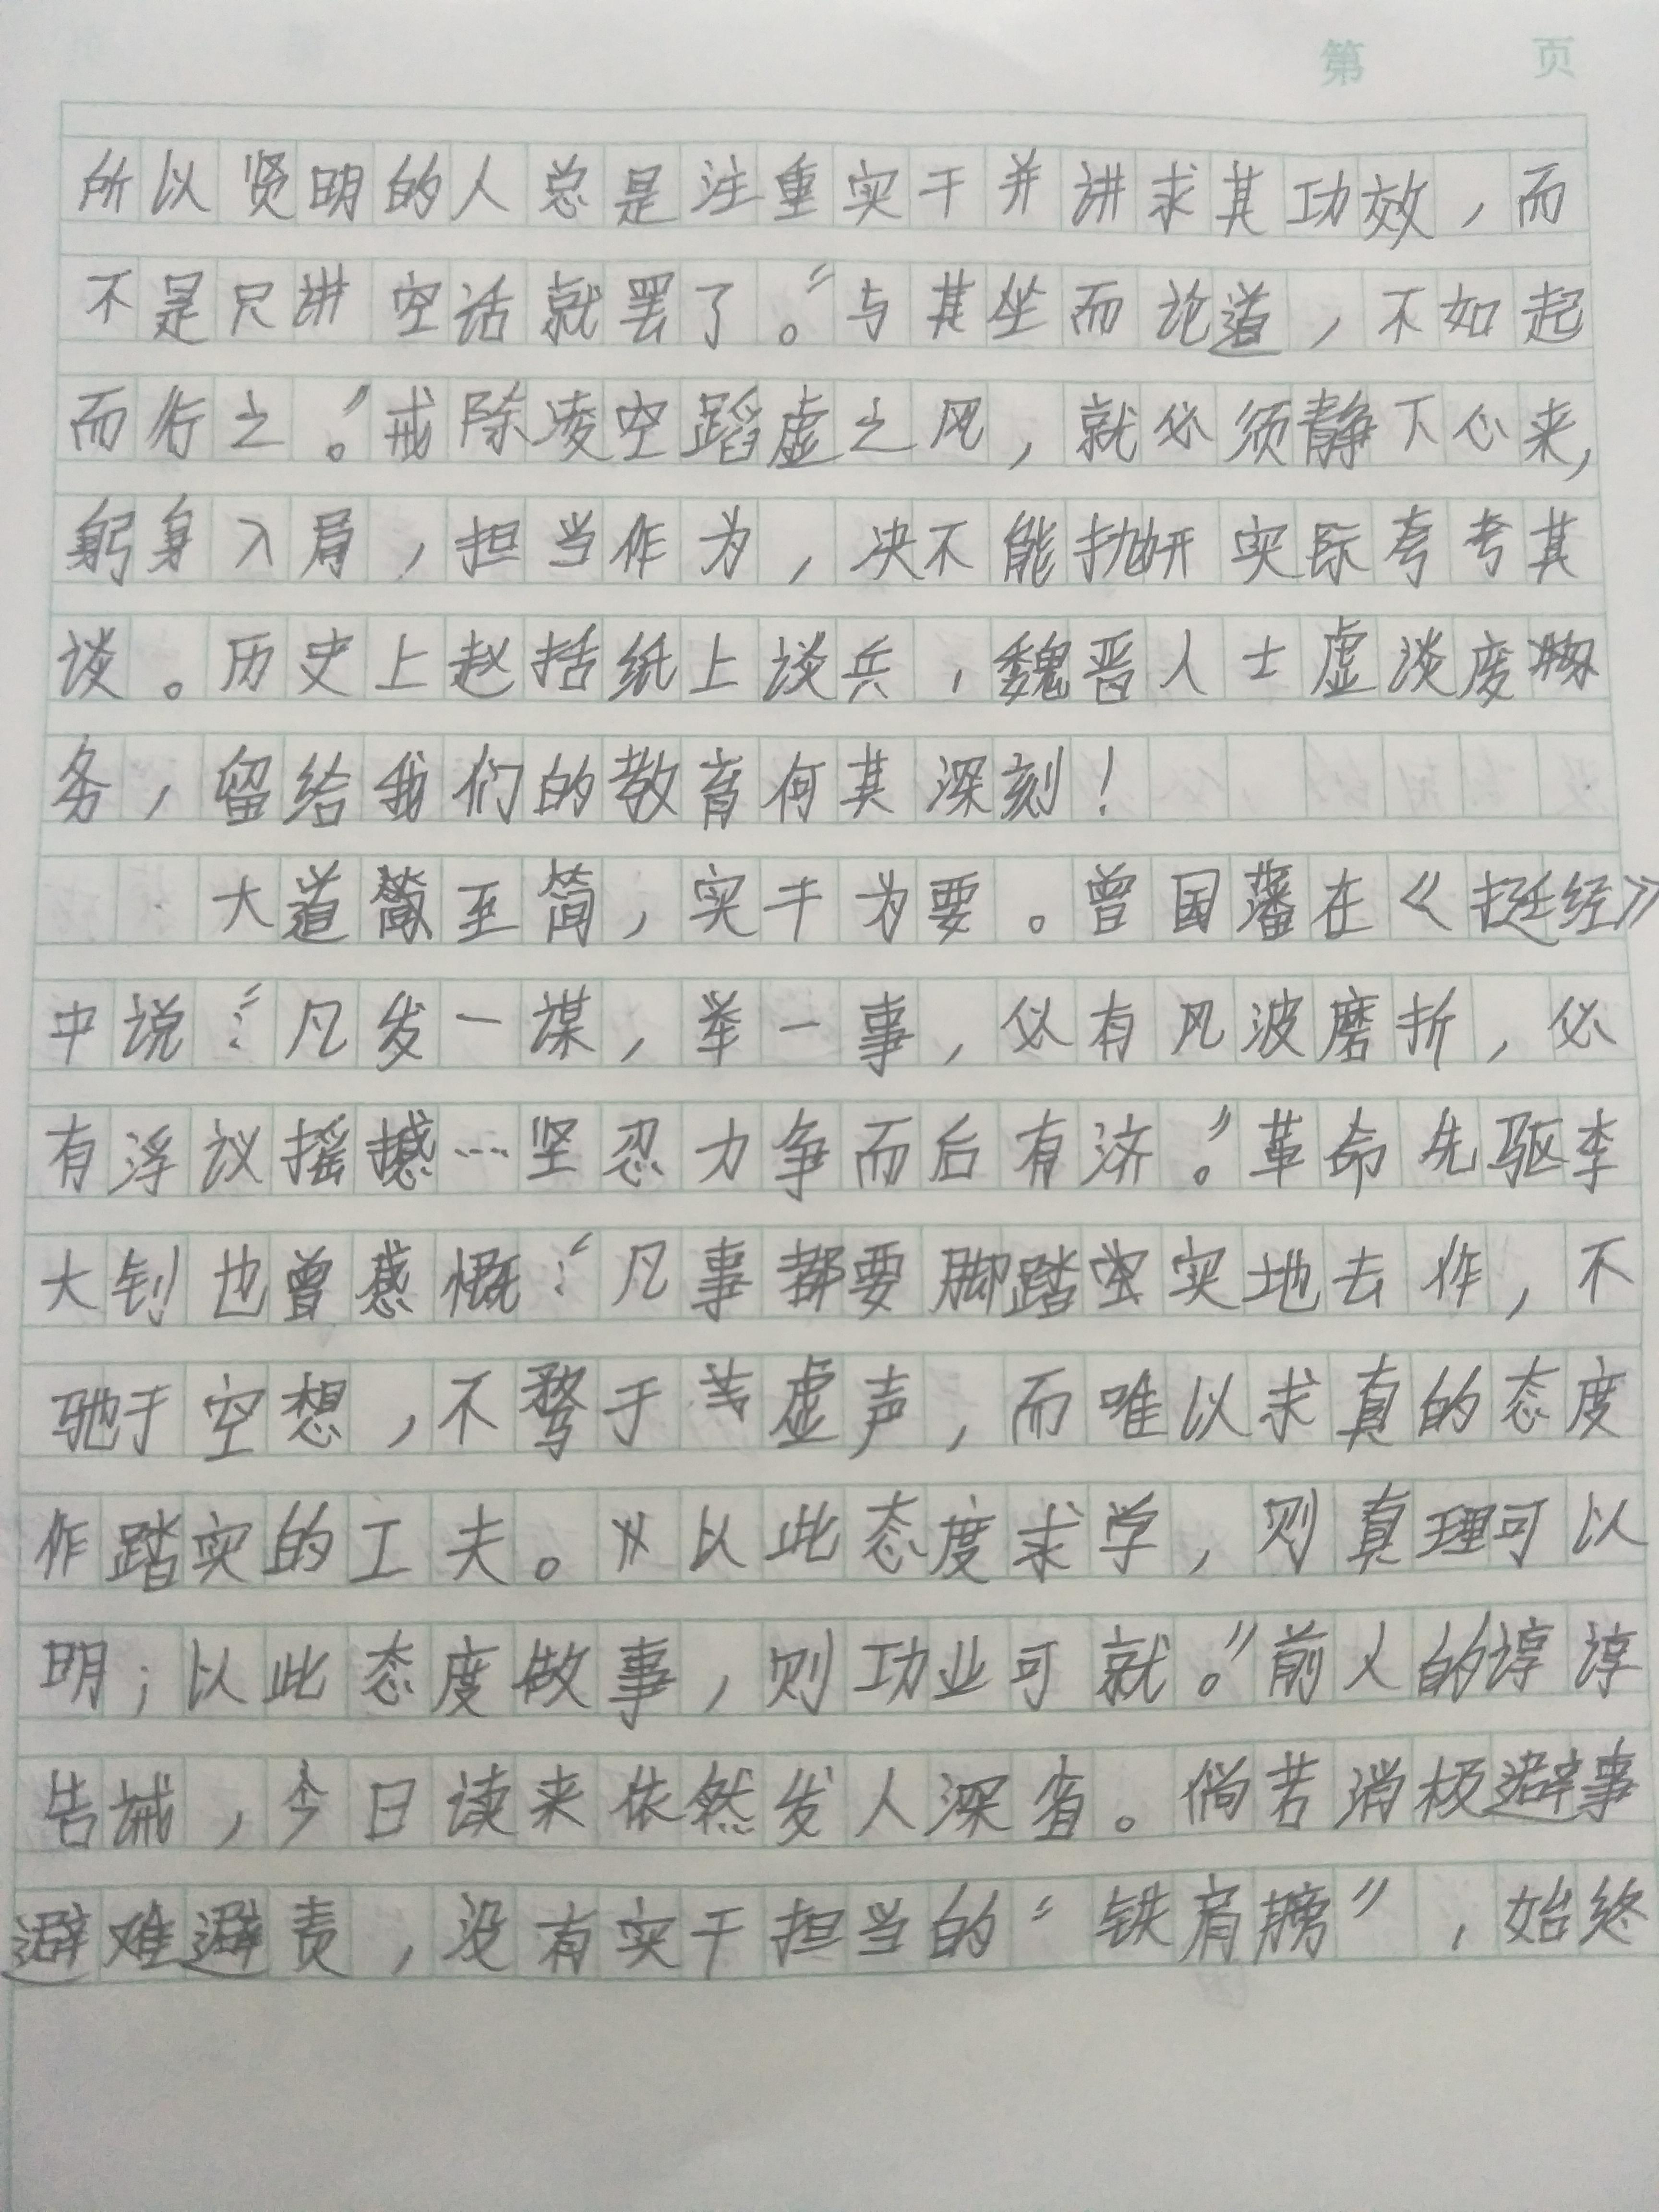 第 页
所以贤明的人总是注重实干并讲求其功效，而
不是只讲空话就罢了。"与其坐而论道，不如起
而行之。"戒除凌空蹈虚之风，就必须静下心来，
躬身入局，担当作为，决不能抛开实际夸夸其
谈。历史上赵括纸上谈兵，魏晋人士虚谈废
务，留给我们的教育何其深刻！
大道至简，实干为要。曾国藩在《挺经》
中说："凡发一谋，举一事，必有风波磨折，必
有浮议摇撼…坚忍力争而后有济。"革命先驱李
大钊也曾感慨："凡事都要脚踏实地去作，不
驰于空想，不骛于虚声，而唯以求真的态度
作踏实的工夫。以此态度求学，则真理可以
明；以此态度做事，则功业可就。"前人的谆谆
告诫，今日读来依然发人深省。倘若消极避事
避难避责，没有实干担当的"铁肩膀"，始终